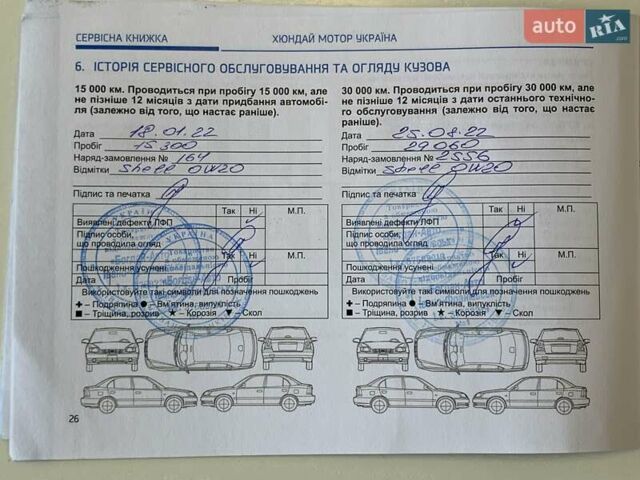 auto RIA .com
СЕРВІСНА КНИЖКА
ХЮНДАЙ МОТОР УКРАЇНА
6. ІСТОРІЯ СЕРВІСНОГО ОБСЛУГОВУВАННЯ ТА ОГЛЯДУ КУЗОВА
15 000 км. Проводиться при пробігу 15 000 км, але
не пізніше 12 місяців з дати придбання автомобі-
ля (залежно від того, що настає раніше).
Дата 18.01.22
Пробіг 15300
Наряд-замовлення № 164
Відмітки Shell 0W20
Підпис та печатка
Так Ні М.П.
Виявлені дефекти ЛФП
Підпис особи,
що проводила огляд
Так Ні М.П.
Пошкодження усунені
Дата Пробіг
Використовуйте такі символи для позначення пошкоджень
+ – Подряпина ● – Вм'ятина, випуклість
■ – Тріщина, розрив ★ – Корозія ▼ – Скол
30 000 км. Проводиться при пробігу 30 000 км, але
не пізніше 12 місяців з дати останнього технічно-
го обслуговування (залежно від того, що настає
раніше).
Дата 25.08.22
Пробіг 29060
Наряд-замовлення № 2556
Відмітки Shell 0W20
Підпис та печатка
Так Ні М.П.
Виявлені дефекти ЛФП
Підпис особи,
що проводила огляд
Так Ні М.П.
Пошкодження усунені
Дата Пробіг
Використовуйте такі символи для позначення пошкоджень
+ – Подряпина ● – Вм'ятина, випуклість
■ – Тріщина, розрив ★ – Корозія ▼ – Скол
26